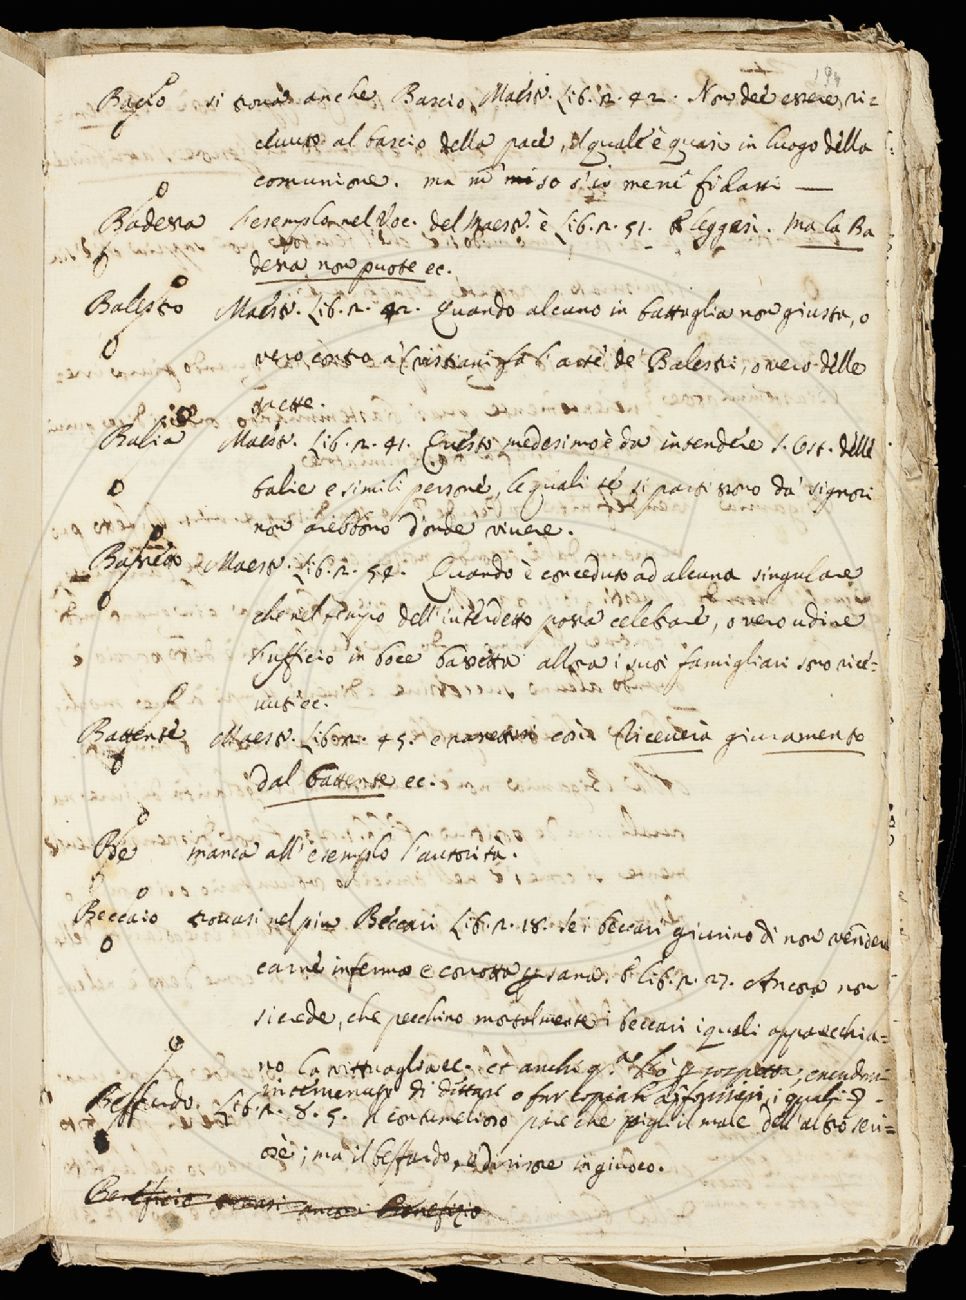 194
Bacio si truova anche Bascio Maestr. Lib. 2. 42. Non dee essere ri=
cevuto al bascio della pace, il quale è quasi in luogo della
comunione. ma
Badessa l'esemplo nel Voc. del Maestr. è Lib. 2. 51. e leggesi. Ma la Ba
dessa non puote ec.
Balestro Maestr. Lib. 2. 42. Quando alcuno in battaglia non giusta, o
vero contro a' Cristiani fa l'arte de' Balestri, o vero delle
saette.
Balia Maestr. Lib. 2. 41. Questo medesimo è da intendere s. Ost. delle
balie e simili persone, le quali se si partissono da' signori
non arebbono d'onde vivere.
Bassetto Maestr. Lib. 2. 54. Quando è conceduto ad alcuna singulare
che nel tempo dell'interdetto possa celebrare, o vero udire
l'ufficio in boce bassetta allora i suoi famigliari sono rice=
vuti ec.
Battente Maestr. Lib. 2. 45. e così Riceverà giuramento
dal battente ec.
Be manca all'esemplo l'autorità.
Beccaio trovasi nel piu Beccari Lib. 2. 18. Se i beccari giurino di non vendere
carne inferma e corrotta p sana. e Lib. 2. 27. Ancora non
si crede, che pecchino mortalmente i beccari i quali apparecchia=
no la vittuaglia ec. et anche
di dittare o far copiare a' forestieri, i quali
Beffardo Lib. 2. 8. 5. Il contumelioso pare che pigli il male dell'altro seri=
ore; ma il beffardo, e derisore in giuoco.
Beneficio trovasi ancora Benefizio